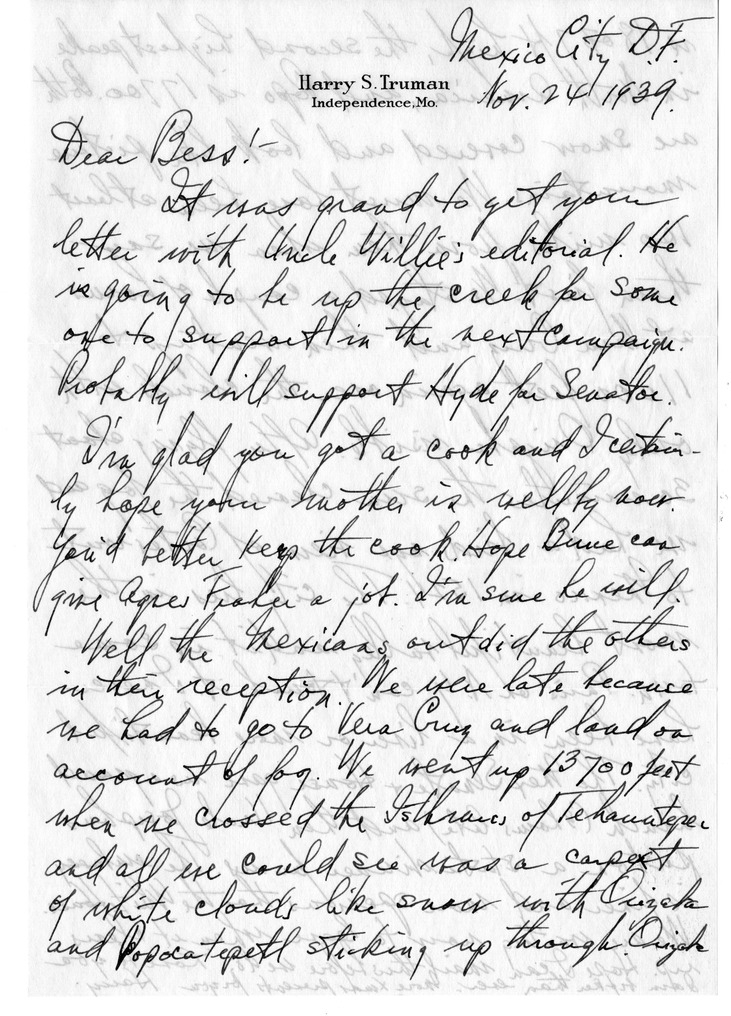 Mexico City D.F.
Harry S. Truman
Independence, Mo.
Nov. 24 1939.
Dear Bess:-
It was grand to get your
letter with Uncle Willie's editorial. He
is going to be up the creek for some
one to support in the next campaign.
Probably will support Hyde for Senator.
I'm glad you got a cook and I certain-
ly hope your mother is well by now.
You'd better keep the cook. Hope can
give Agnes a job. I'm sure he will.
Well the Mexicans outdid the others
in their reception. We were late because
we had to go to Vera Cruz and land on
account of fog. We went up 13700 feet
when we crossed the Isthmus of Tehauntepec
and all we could see was a carpet
of white clouds like snow with Orizaba
and Popocatepetl sticking up through. Orizaba